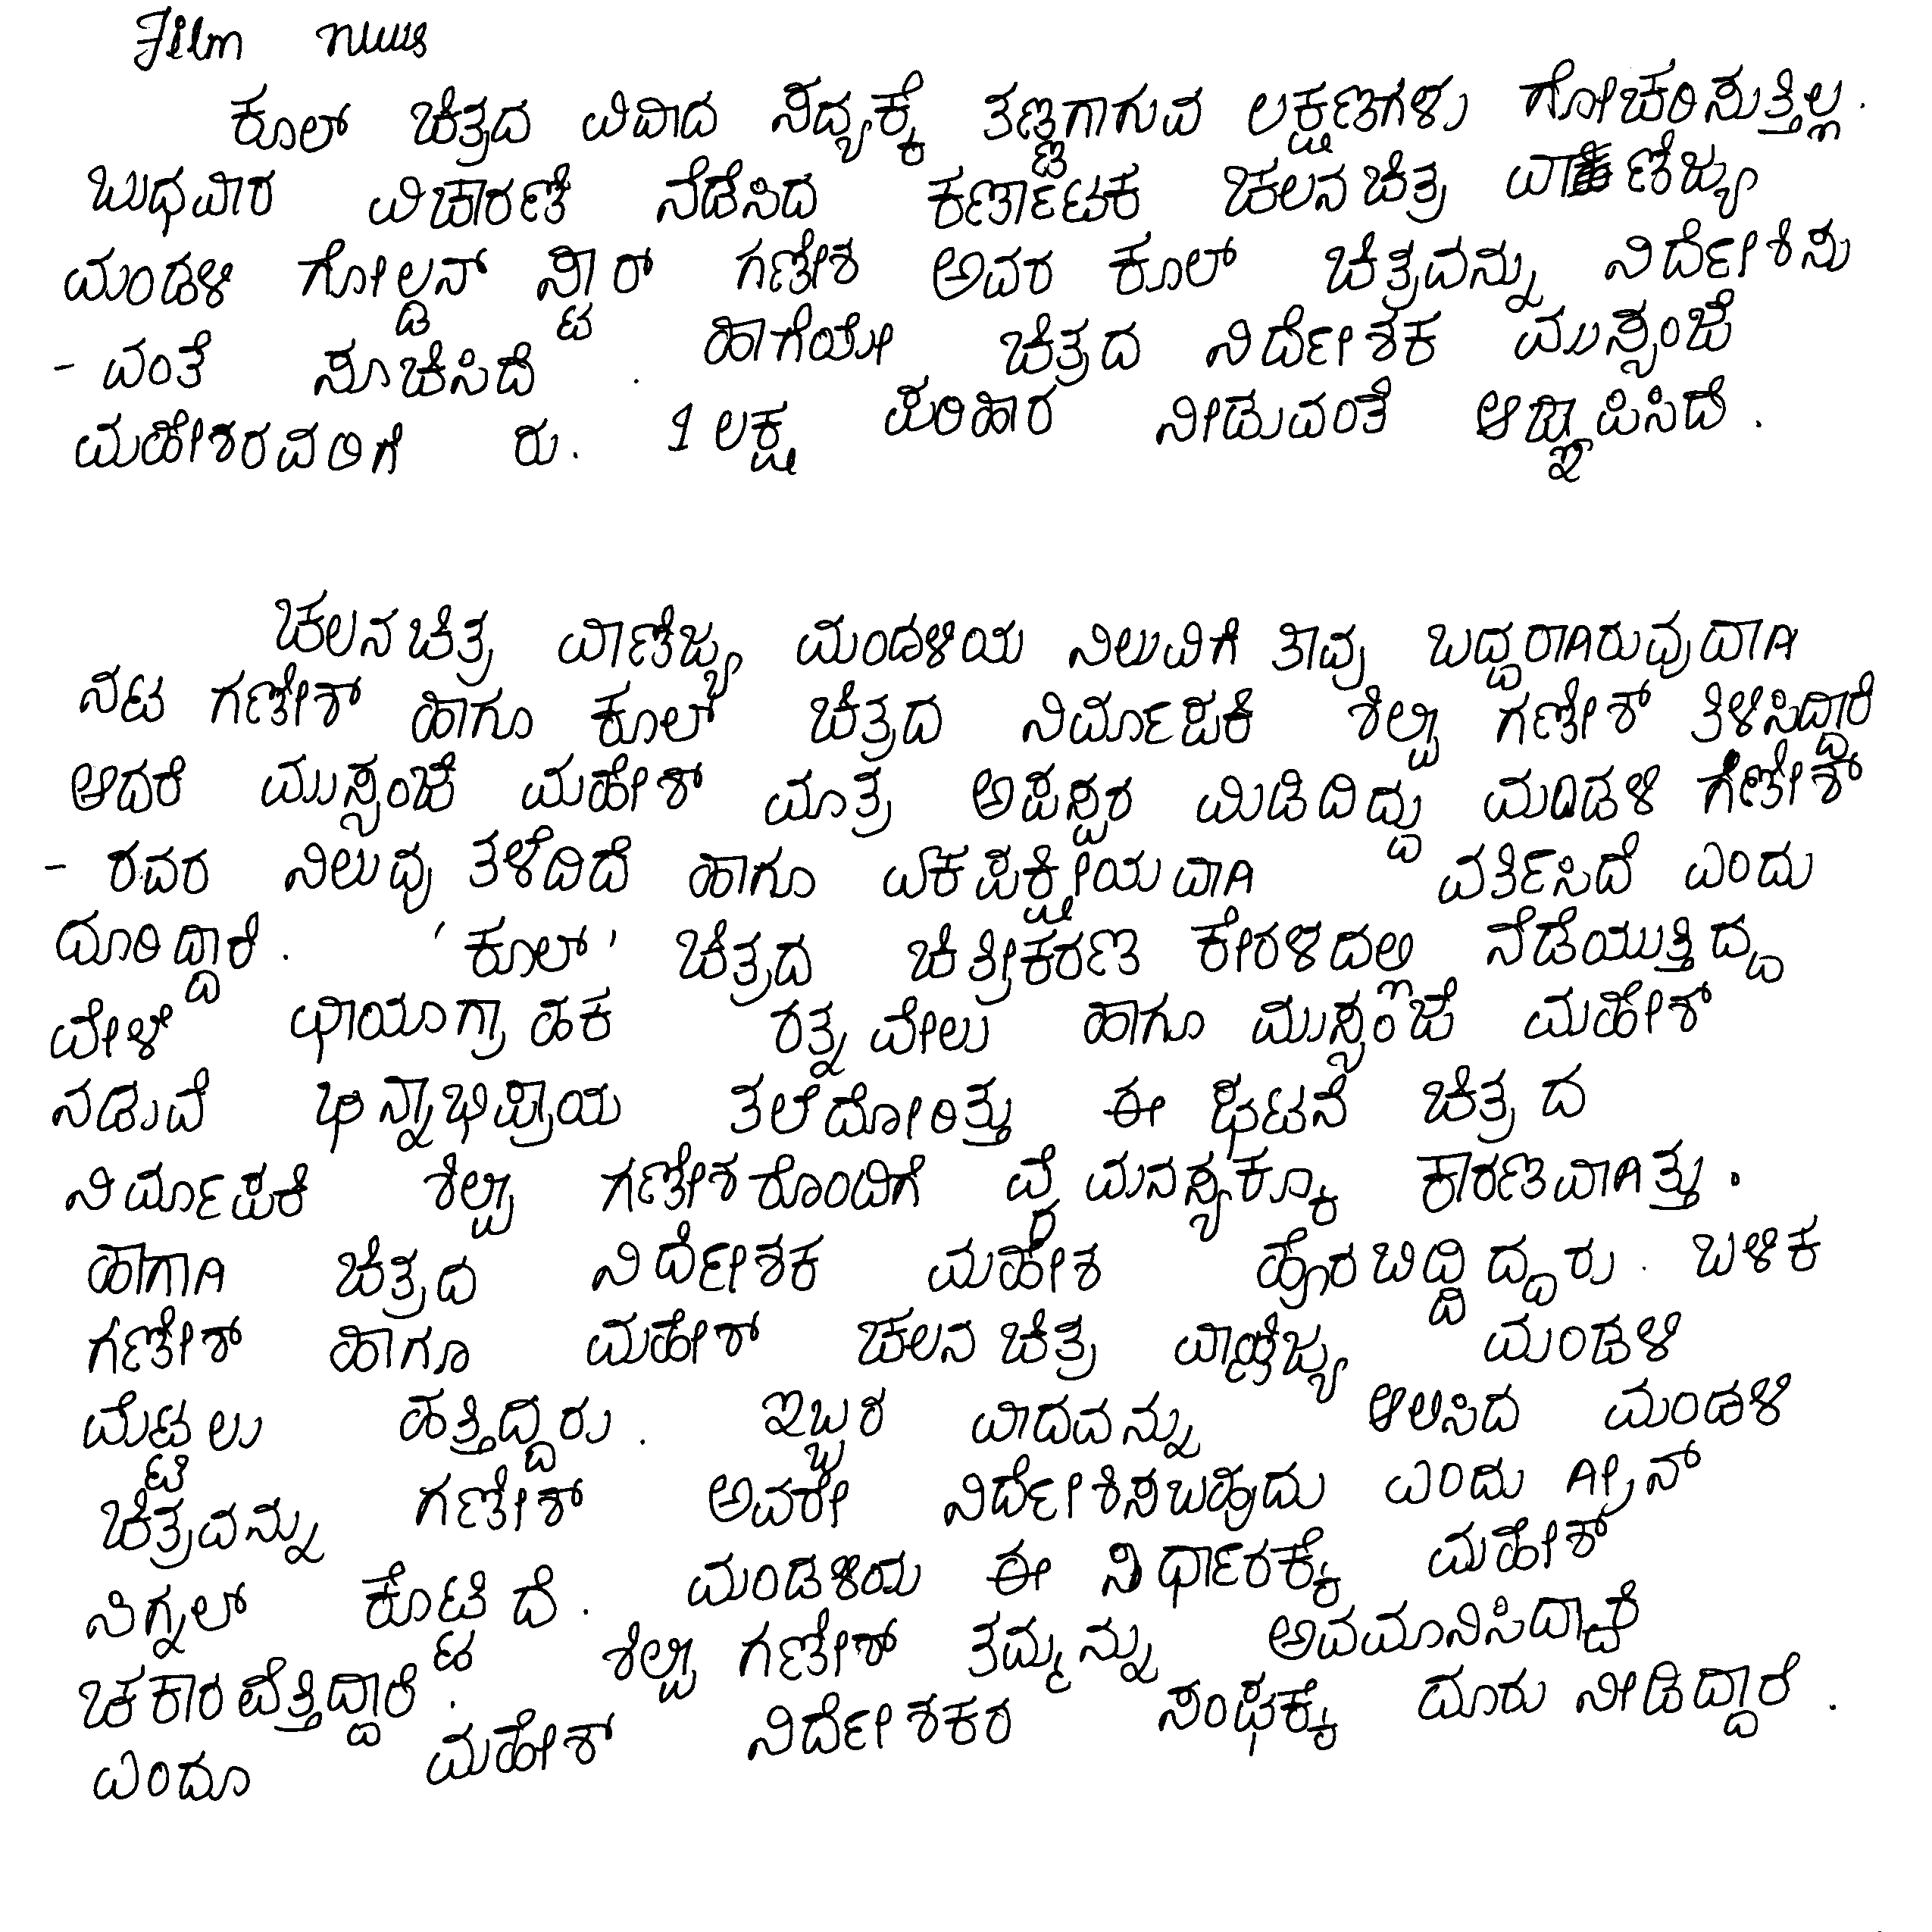 Film news
ಕೂಲ್ ಚಿತ್ರದ ವಿವಾದ ಸಧ್ಯಕ್ಕೆ ತಣ್ಣಗಾಗುವ ಲಕ್ಷಣಗಳು ಗೋಚರಿಸುತ್ತಿಲ್ಲ.
ಬುಧವಾರ ವಿಚಾರಣೆ ನೆಡೆಸಿದ ಕರ್ಣಾಟಕ ಚಲನಚಿತ್ರ ವಾಣಿಜ್ಯ
ಮಂಡಳಿ ಗೋಲ್ಡನ್ ಸ್ಟಾರ್ ಗಣೇಶ ಅವರ ಕೂಲ್ ಚಿತ್ರವನ್ನು ನಿರ್ದೇಶಿಸು
- ವಂತೆ ಸೂಚಿಸಿದೆ. ಹಾಗೆಯೇ ಚಿತ್ರದ ನಿರ್ದೇಶಕ ಮುಸ್ಸಂಜೆ
ಮಹೇಶರವರಿಗೆ ರು. 1 ಲಕ್ಷ ಪರಿಹಾರ ನೀಡುವಂತೆ ಆಜ್ಞಾಪಿಸಿದೆ.
ಚಲನಚಿತ್ರ ವಾಣಿಜ್ಯ ಮಂಡಳಿಯ ನಿಲುವಿಗೆ ತಾವು ಬದ್ದರಾಗಿರುವುದಾಗಿ
ನಟ ಗಣೇಶ್ ಹಾಗೂ ಕೂಲ್ ಚಿತ್ರದ ನಿರ್ಮಾಪಕಿ ಶಿಲ್ಪಾ ಗಣೇಶ್ ತಿಳಿಸಿದ್ದಾರೆ
ಆದರೆ ಮುಸ್ಸಂಜೆ ಮಹೇಶ್ ಮಾತ್ರ ಅಪಸ್ವರ ಮಿಡಿದಿದ್ದು ಮಂಡಳಿ ಗಣೇಶ್
- ರವರ ನಿಲುವು ತಳೆದಿದೆ ಹಾಗೂ ಏಕಪಕ್ಷೀಯವಾಗಿ ವರ್ತಿಸಿದೆ ಎಂದು
ದೂರಿದ್ದಾರೆ. ' ಕೂಲ್ ' ಚಿತ್ರದ ಚಿತ್ರೀಕರಣ ಕೇರಳದಲ್ಲಿ ನೆಡೆಯುತ್ತಿದ್ದ
ವೇಳೆ ಛಾಯಾಗ್ರಾಹಕ ರತ್ನವೇಲು ಹಾಗೂ ಮುಸ್ಸಂಜೆ ಮಹೇಶ್
ನಡುವೆ ಭಿನ್ನಾಭಿಪ್ರಾಯ ತಲೆದೋರಿತ್ತು ಈ ಘಟನೆ ಚಿತ್ರದ
ನಿರ್ಮಾಪಕಿ ಶಿಲ್ಪಾ ಗಣೇಶರೊಂದಿಗೆ ವೈಮನಸ್ಯಕ್ಕೂ ಕಾರಣವಾಗಿತ್ತು.
ಹಾಗಾಗಿ ಚಿತ್ರದ ನಿರ್ದೇಶಕ ಮಹೇಶ ಹೊರಬಿದ್ದಿದ್ದರು. ಬಳಿಕ
ಗಣೇಶ್ ಹಾಗೂ ಮಹೇಶ್ ಚಲನಚಿತ್ರ ವಾಣಿಜ್ಯ ಮಂಡಳಿ
ಮೆಟ್ಟಿಲು ಹತ್ತಿದ್ದಿರು. ಇಬ್ಬರ ವಾದವನ್ನು ಆಲಿಸಿದ ಮಂಡಳಿ
ಚಿತ್ರವನ್ನು ಗಣೇಶ್ ಅವರೇ ನಿರ್ದೇಶಿಸಬಹುದು ಎಂದು ಗ್ರೀನ್
ಸಿಗ್ನಲ್ ಕೊಟ್ಟಿದೆ. ಮಂಡಳಿಯ ಈ ನಿರ್ಧಾರಕ್ಕೆ ಮಹೇಶ್
ಚಕಾರವೆತ್ತಿದ್ದಾರೆ. ಶಿಲ್ಪಾ ಗಣೇಶ್ ತಮ್ಮನ್ನು ಅವಮಾನಿಸಿದ್ದಾರೆ
ಎಂದೂ ಮಹೇಶ್ ನಿರ್ದೇಶಕರ ಸಂಘಕ್ಕೆ ದೂರು ನೀಡಿದ್ದಾರೆ.